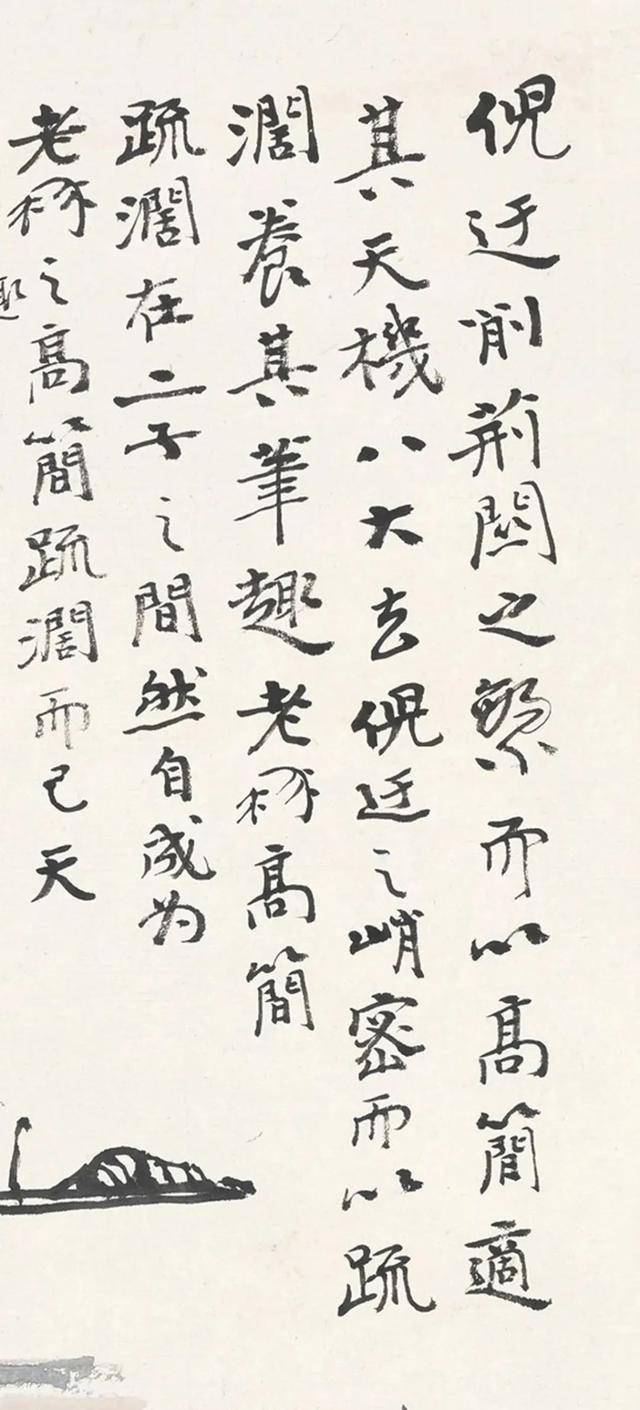 倪迂削荊關之繁而以高簡適
其天機八大去倪迂之峭密而以疏
濶養其筆趣老梯高簡
疏濶在二子之間然自成为
老梯之高簡疏濶而已天